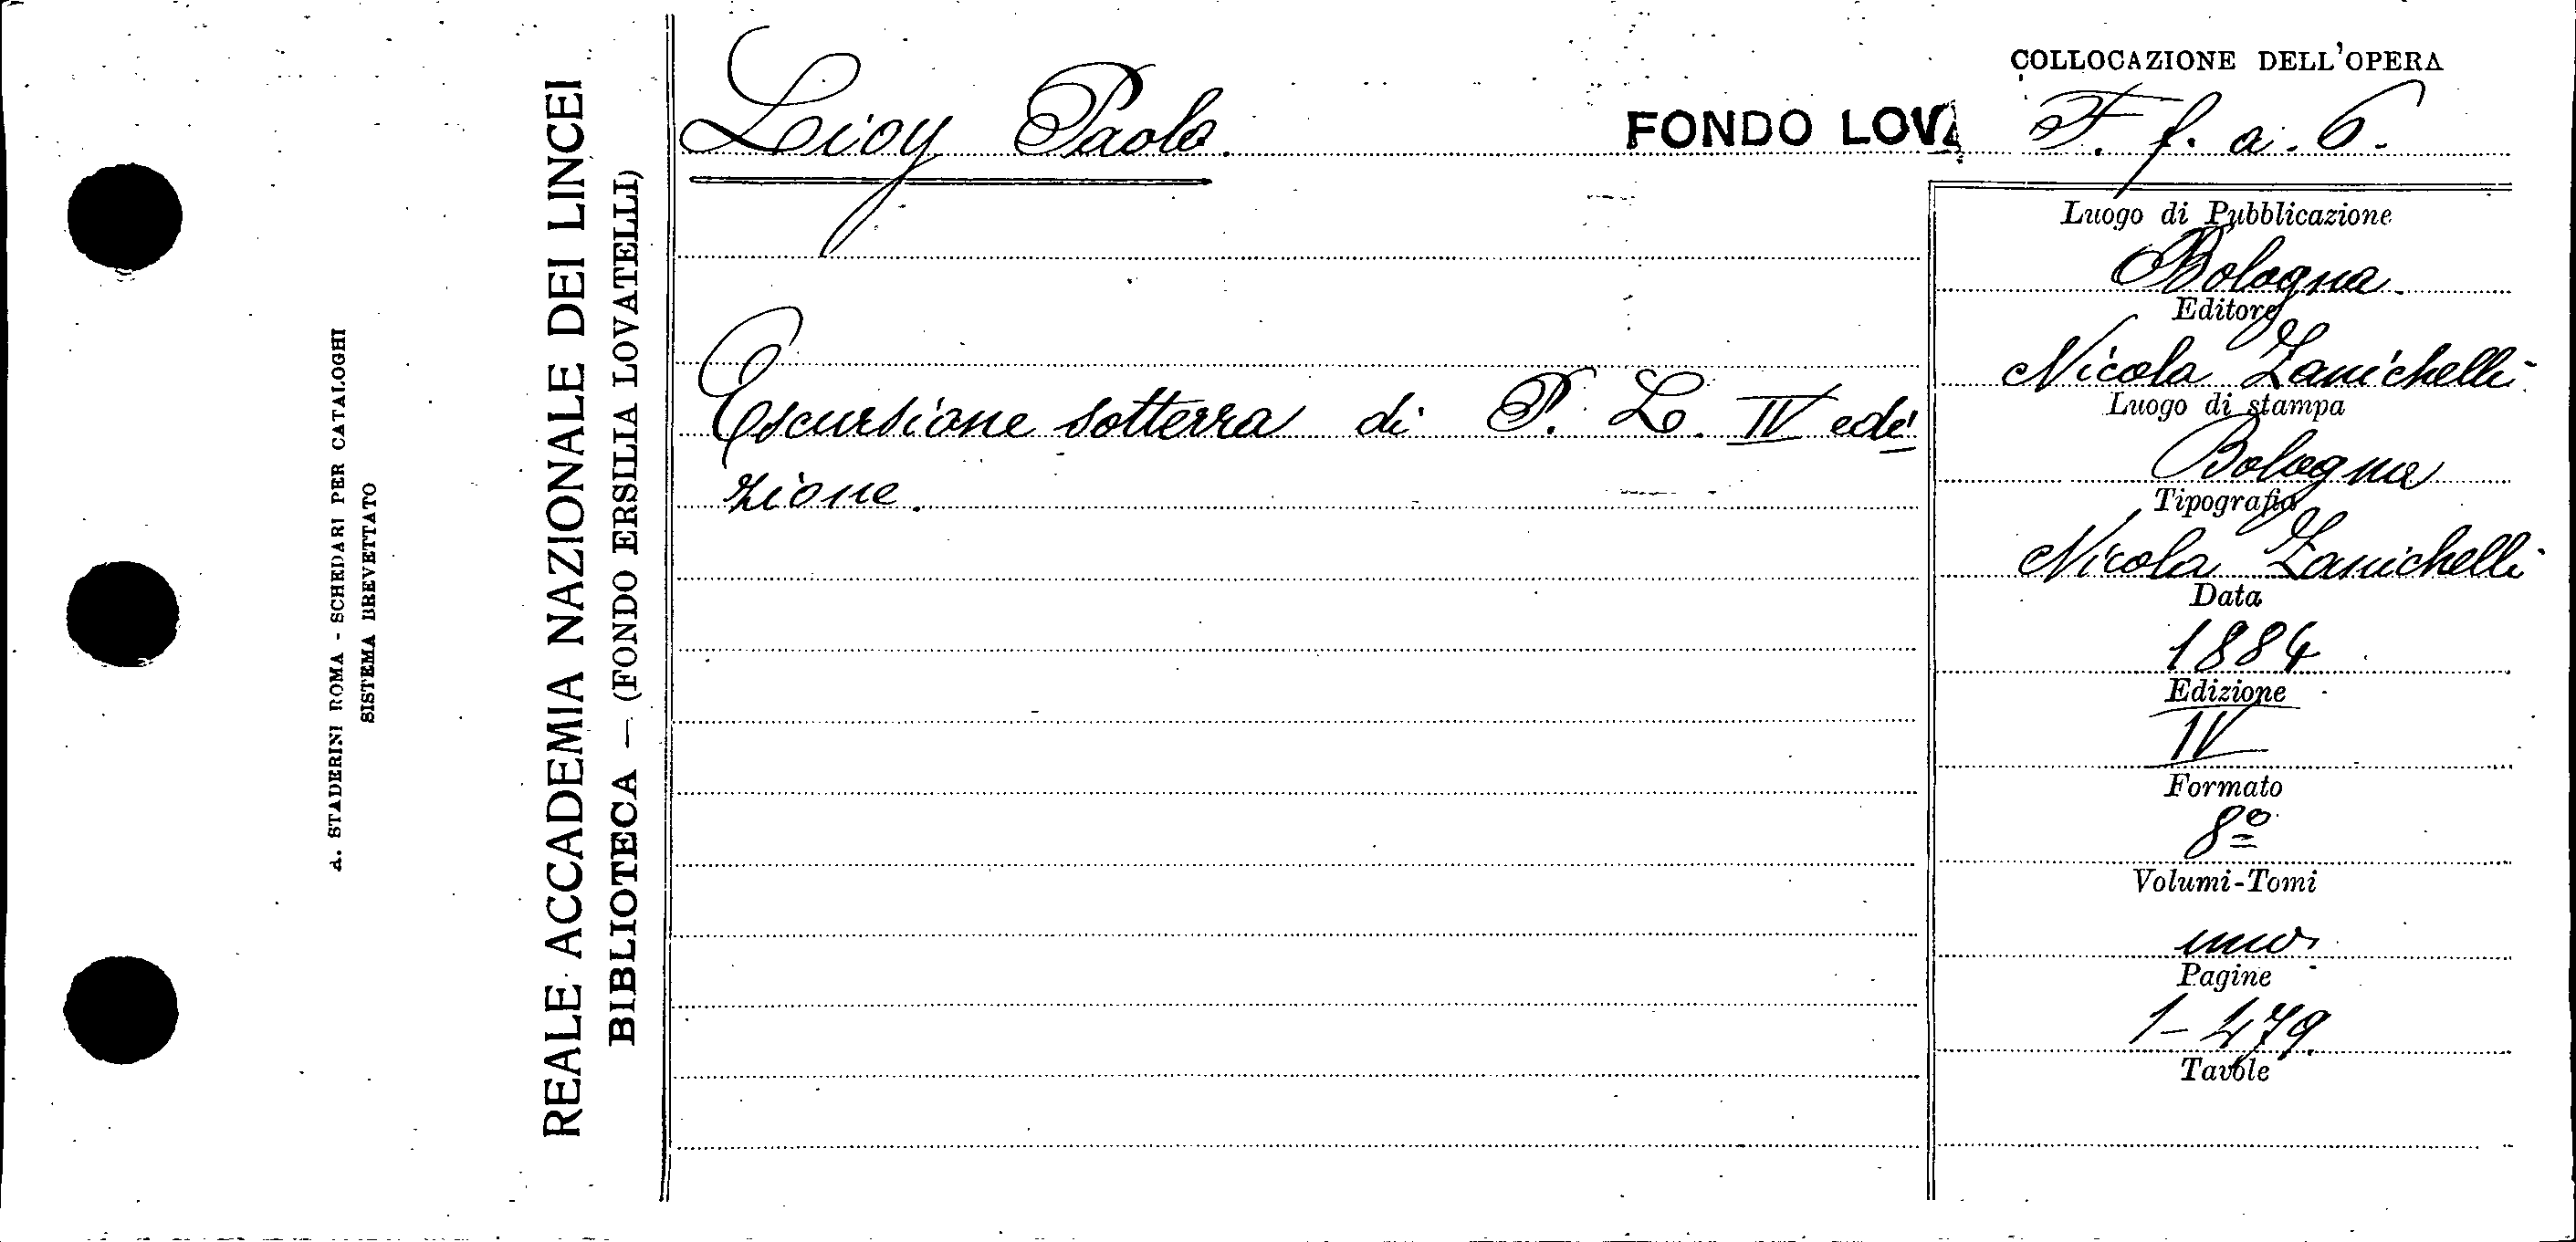 A. STADERINI ROMA - SCHEDARI PER CATALOGHI
SISTEMA BREVETTATO
REALE ACCADEMIA NAZIONALE DEI LINCEI
BIBLIOTECA — (FONDO ERSILIA LOVATELLI)
Lioy Paolo.
FONDO LOVA
COLLOCAZIONE DELL'OPERA
F. f. a. 6.
Escursione sotterra di P. L. IV edi
zione.
Luogo di Pubblicazione
Bologna
Editore
Nicola Zanichelli
Luogo di stampa
Bologna
Tipografia
Nicola Zanichelli
Data
1884
Edizione
IV
Formato
8º
Volumi-Tomi
uno
Pagine
1-479
Tavole